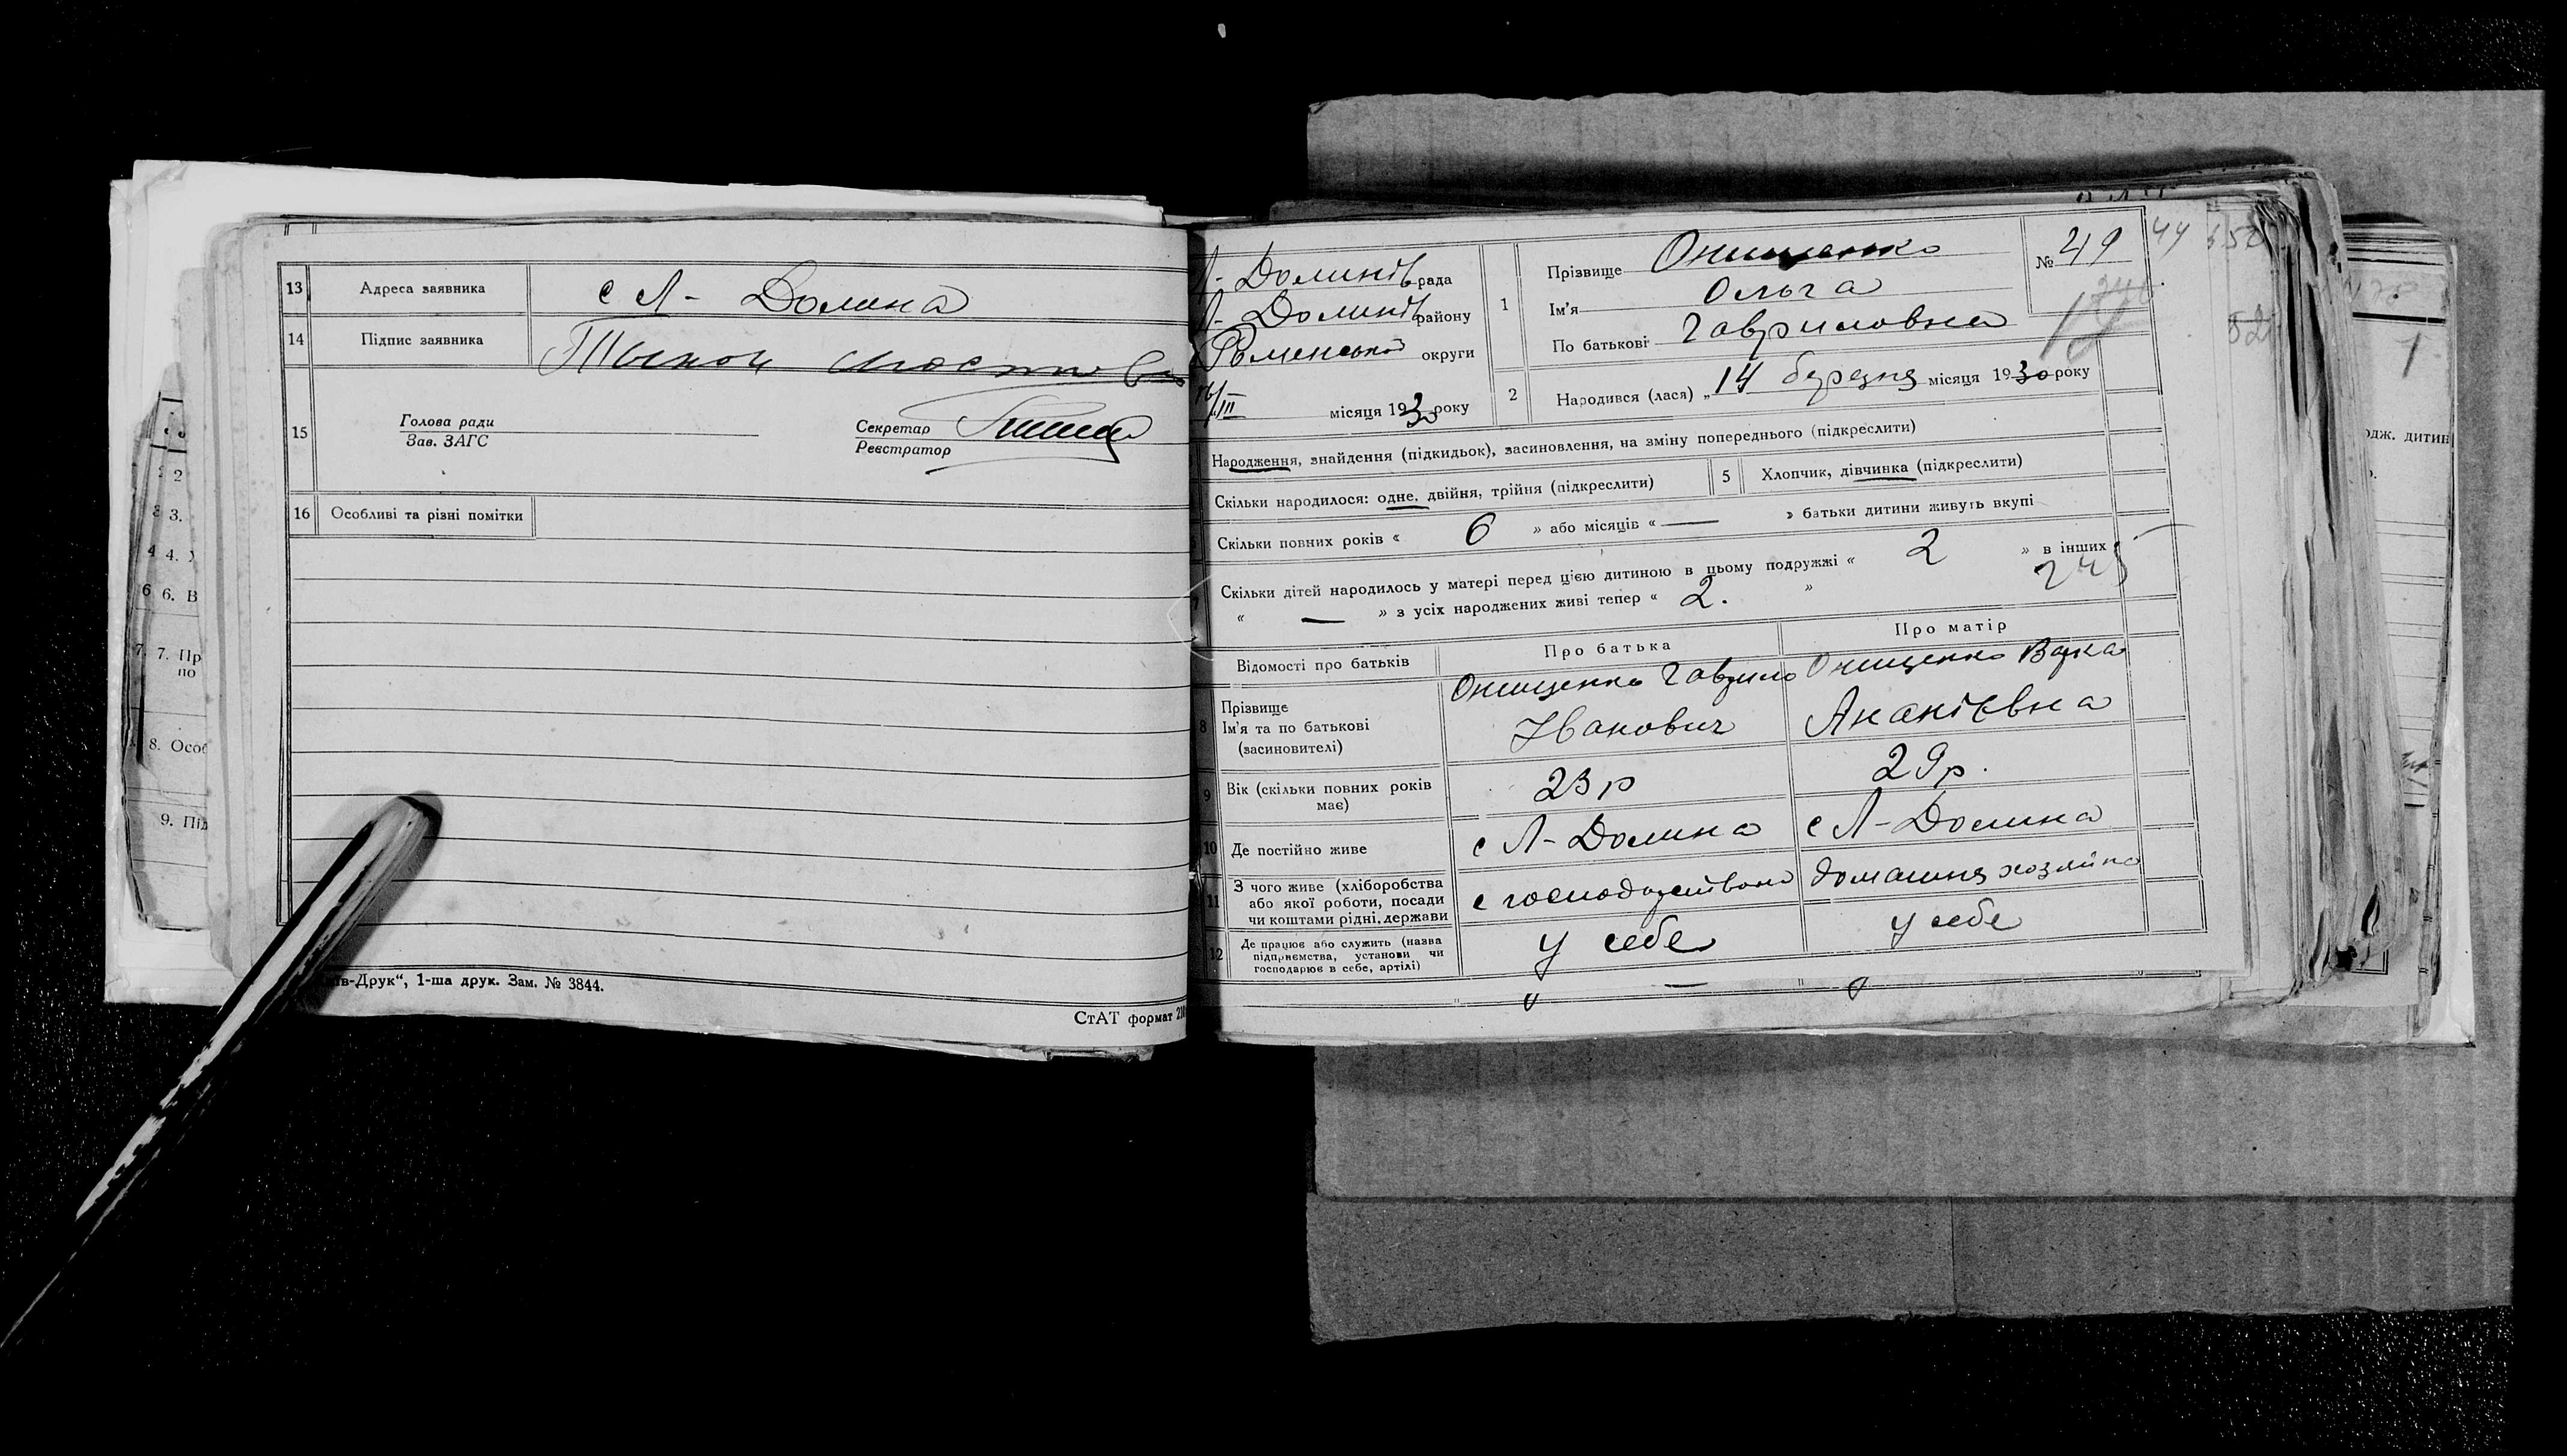 13 Адреса заявника с Л- Долина
14 Підпис заявника
15 Голова ради
Зав. ЗАГС
Секретар
Реєстратор
16 Особливі та різні помітки
в-Друк“, 1-ша друк. Зам. № 3844.
СтАТ формат
2
3.
4 4.
6 6. В
7. 7. Пр
по
8. Особ
9. Під
Л- Долинів рада
Л- Долинів району
Роменської округи
16/III місяця 1930 року
1 Прізвище Онищенко
Ім'я Ольга
По батькові Гавриловна
№ 49
44
2 Народився (лася) „14 березня місяця 1930 року
Народження, знайдення (підкидьок), засиновлення, на зміну попереднього (підкреслити)
Скільки народилося: одне, двійня, трійня (підкреслити)
5 Хлопчик, дівчинка (підкреслити)
Скільки повних років « 6 » або місяців « — » батьки дитини живуть вкупі
7 Скільки дітей народилось у матері перед цією дитиною в цьому подружжі « 2 » в інших
« — » з усіх народжених живі тепер « 2. »
245
Відомості про батьків Про батька Про матір
8 Прізвище
Ім'я та по батькові
(засиновителі)
Онищенко Гаврило
Іванович
Онищенко
Ананієвна
9 Вік (скільки повних років
має)
23 р
29 р.
10 Де постійно живе с Л-Долина с Л-Долина
11 З чого живе (хліборобства
або якої роботи, посади
чи коштами рідні, держави
с господарствона
домашня хозяйка
12 Де працює або служить (назва
підприємства, установи чи
господарює в себе, артілі)
у себе
у себе
одж. дитин
1